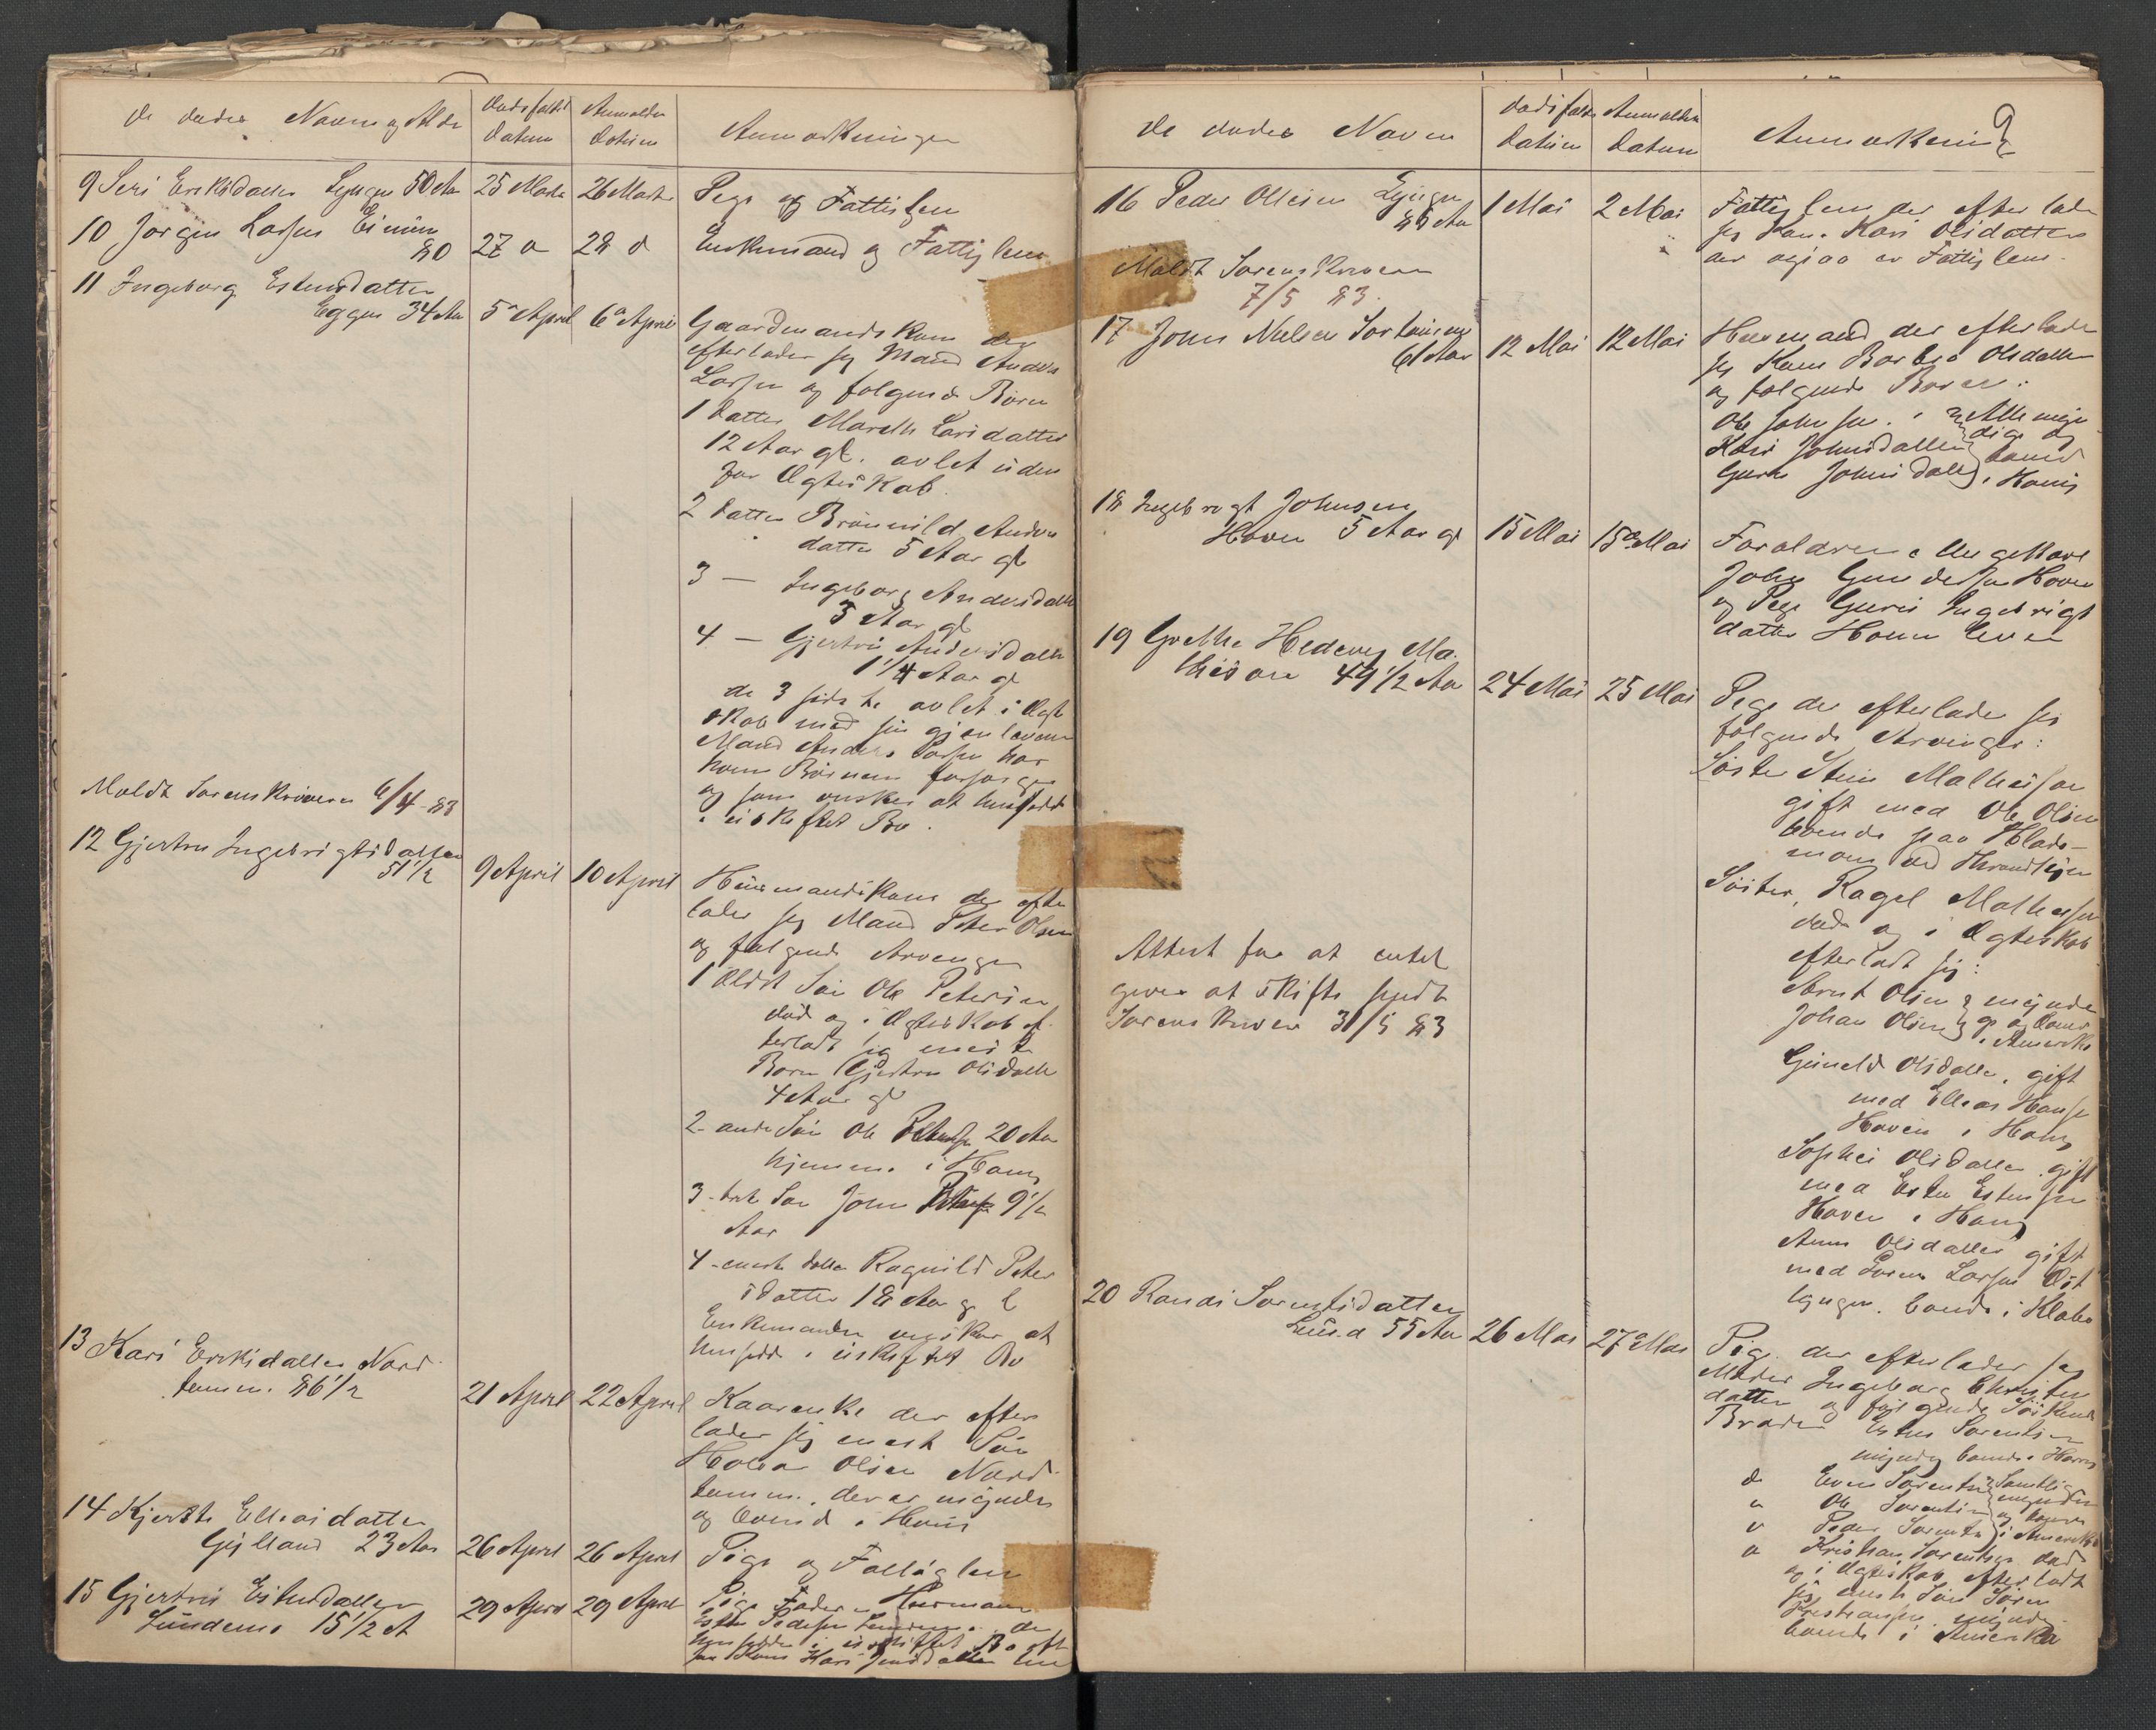 de dødes Navn og Alder
Dødsfaldets Datum
Anmeldes Datum
Anmærkninger
9 Siri Eriksdatter Lyngen 50 Aar
25 Marts
26 Marts
Pige og Fattiglem
10 Jørgen Larsen
80
27 d
28 d
Enkemand og Fattiglem
11 Ingeborg Estensdatter
Eggen 34 Aar
5 April
6 April
Gaardmandskone der
efterlader sig Mand Anders
Larsen og følgende Børn
1 Datter Mareth Larsdatter
12 Aar gl. avlet uden
for Ægteskab.
2 Datter Brønnild Anders
datter 5 Aar gl
3 — Ingeborg Andersdatter
3 Aar gl
4 — Gjertru Andersdatter
1 1/4 Aar gl
de 3 sidste avlet i Ægte
skab med sin gjenlevende
Mand Anders Larsen har
Børnene
og som ønsker at hensidde
i uskiftet Bo.
Meldt Sorenskriveren 6/4 - 83
12 Gjertru Ingebrigtsdatter
51 1/2
9 April
10 April
Husmandskone der efter
lader sig Mand Peter Olsen
og følgende Arvinger
1 Ældst Søn Ole Petersen
død og i Ægteskab ef-
terladt sig eneste
Barn Gjertru Olsdatter
4 Aar gl
2- anden Søn Ole Petersen 20 Aar
hjemme i
3- Søn John Petersen 9 1/2
Aar
4 - eneste datter Ragnild Peters
datter 18 Aar gl
Enkemanden ønsker at
hensidde i uskiftet Bo
13 Kari Eriksdatter Nord
tømme. 86 1/2
21 April
22 April
Kaarenke der efter
lader sig eneste Søn
Olsen Nord
tømme, der er myndig
og boende i
14 Kjerste Elleasdatter
Gylland 23 Aar
26 April
26 April
Pige og Fattiglem
15 Gjertru Estensdatter
Lundemo 15 1/2 A
29 April
29 April
Pige Faderen Husmand
Esten Pedersen Lundemo der
hensidder i uskiftet Bo efter
Kone Kari Jensdatter
de dødes Navn
dødsfalds Datum
Anmeldes Datum
Anmærkning
16 Peder Olsen Lyngen
86 Aar
1 Mai
2 Mai
Fattiglem der efterlader
sig Kone Kari Olsdatter
der ogsaa er Fattiglem.
Meldt Sorenskriveren
7/5 83.
17 John Nielsen
61 Aar
12 Mai
12 Mai
Husmand der efterlader
sig Kone Barbro Olsdatter
og følgende Børn:
Ole Johnsen
Kari Johnsdatter
Guru Johnsdatter
Alle myn-
dige og
boende
i
18 Ingebrigt Johnsen
Hoven 5 Aar gl
15 Mai
15 Mai
Forældrene Ungkarl
John Gundersen Hoven
og Pige Guru Ingebrigts
datter Hoven lever
19 Grethe Hedevig Ma-
thisen 49 1/2 Aar
24 Mai
25 Mai
Pige der efterlader sig
følgende Arvinger:
Søster Stine Mathisen
gift med Ole Olsen
boende paa Hlade-
moen ved Throndhjem
Søster, Ragel Mathisen
død og i Ægteskab
efterladt sig:
Arnt Olsen
Johan Olsen
myndi
ge og boende
i Amerika
Gunild Olsdatter, gift
med Elleas Hansen
Hoven i
Sophie Olsdatter gift
med Esten Estensen
Hoven i
Anne Olsdatter gift
med Larsen Øst
lyngen. boende i Klæbo
Attest for at intet
gives at skifte sendt
Sorenskriver 31/5 83
20 Randi Sorentsdatter
55 Aar
26 Mai
27 Mai
Pige der efterlader sig
Moder Ingeborg Christen
datter og følgende Søskende
Broder Esten Sorentsen
myndig boende i
do Even Sorentsen
" Ole Sorentsen
" Peder Sorentsen
Samtlige
myndige
og boende
i Amerika
" Kristian Sorentsen død
og i Ægteskab efterladt
sig eneste Søn Søren
Kristiansen myndig
boende i Amerika